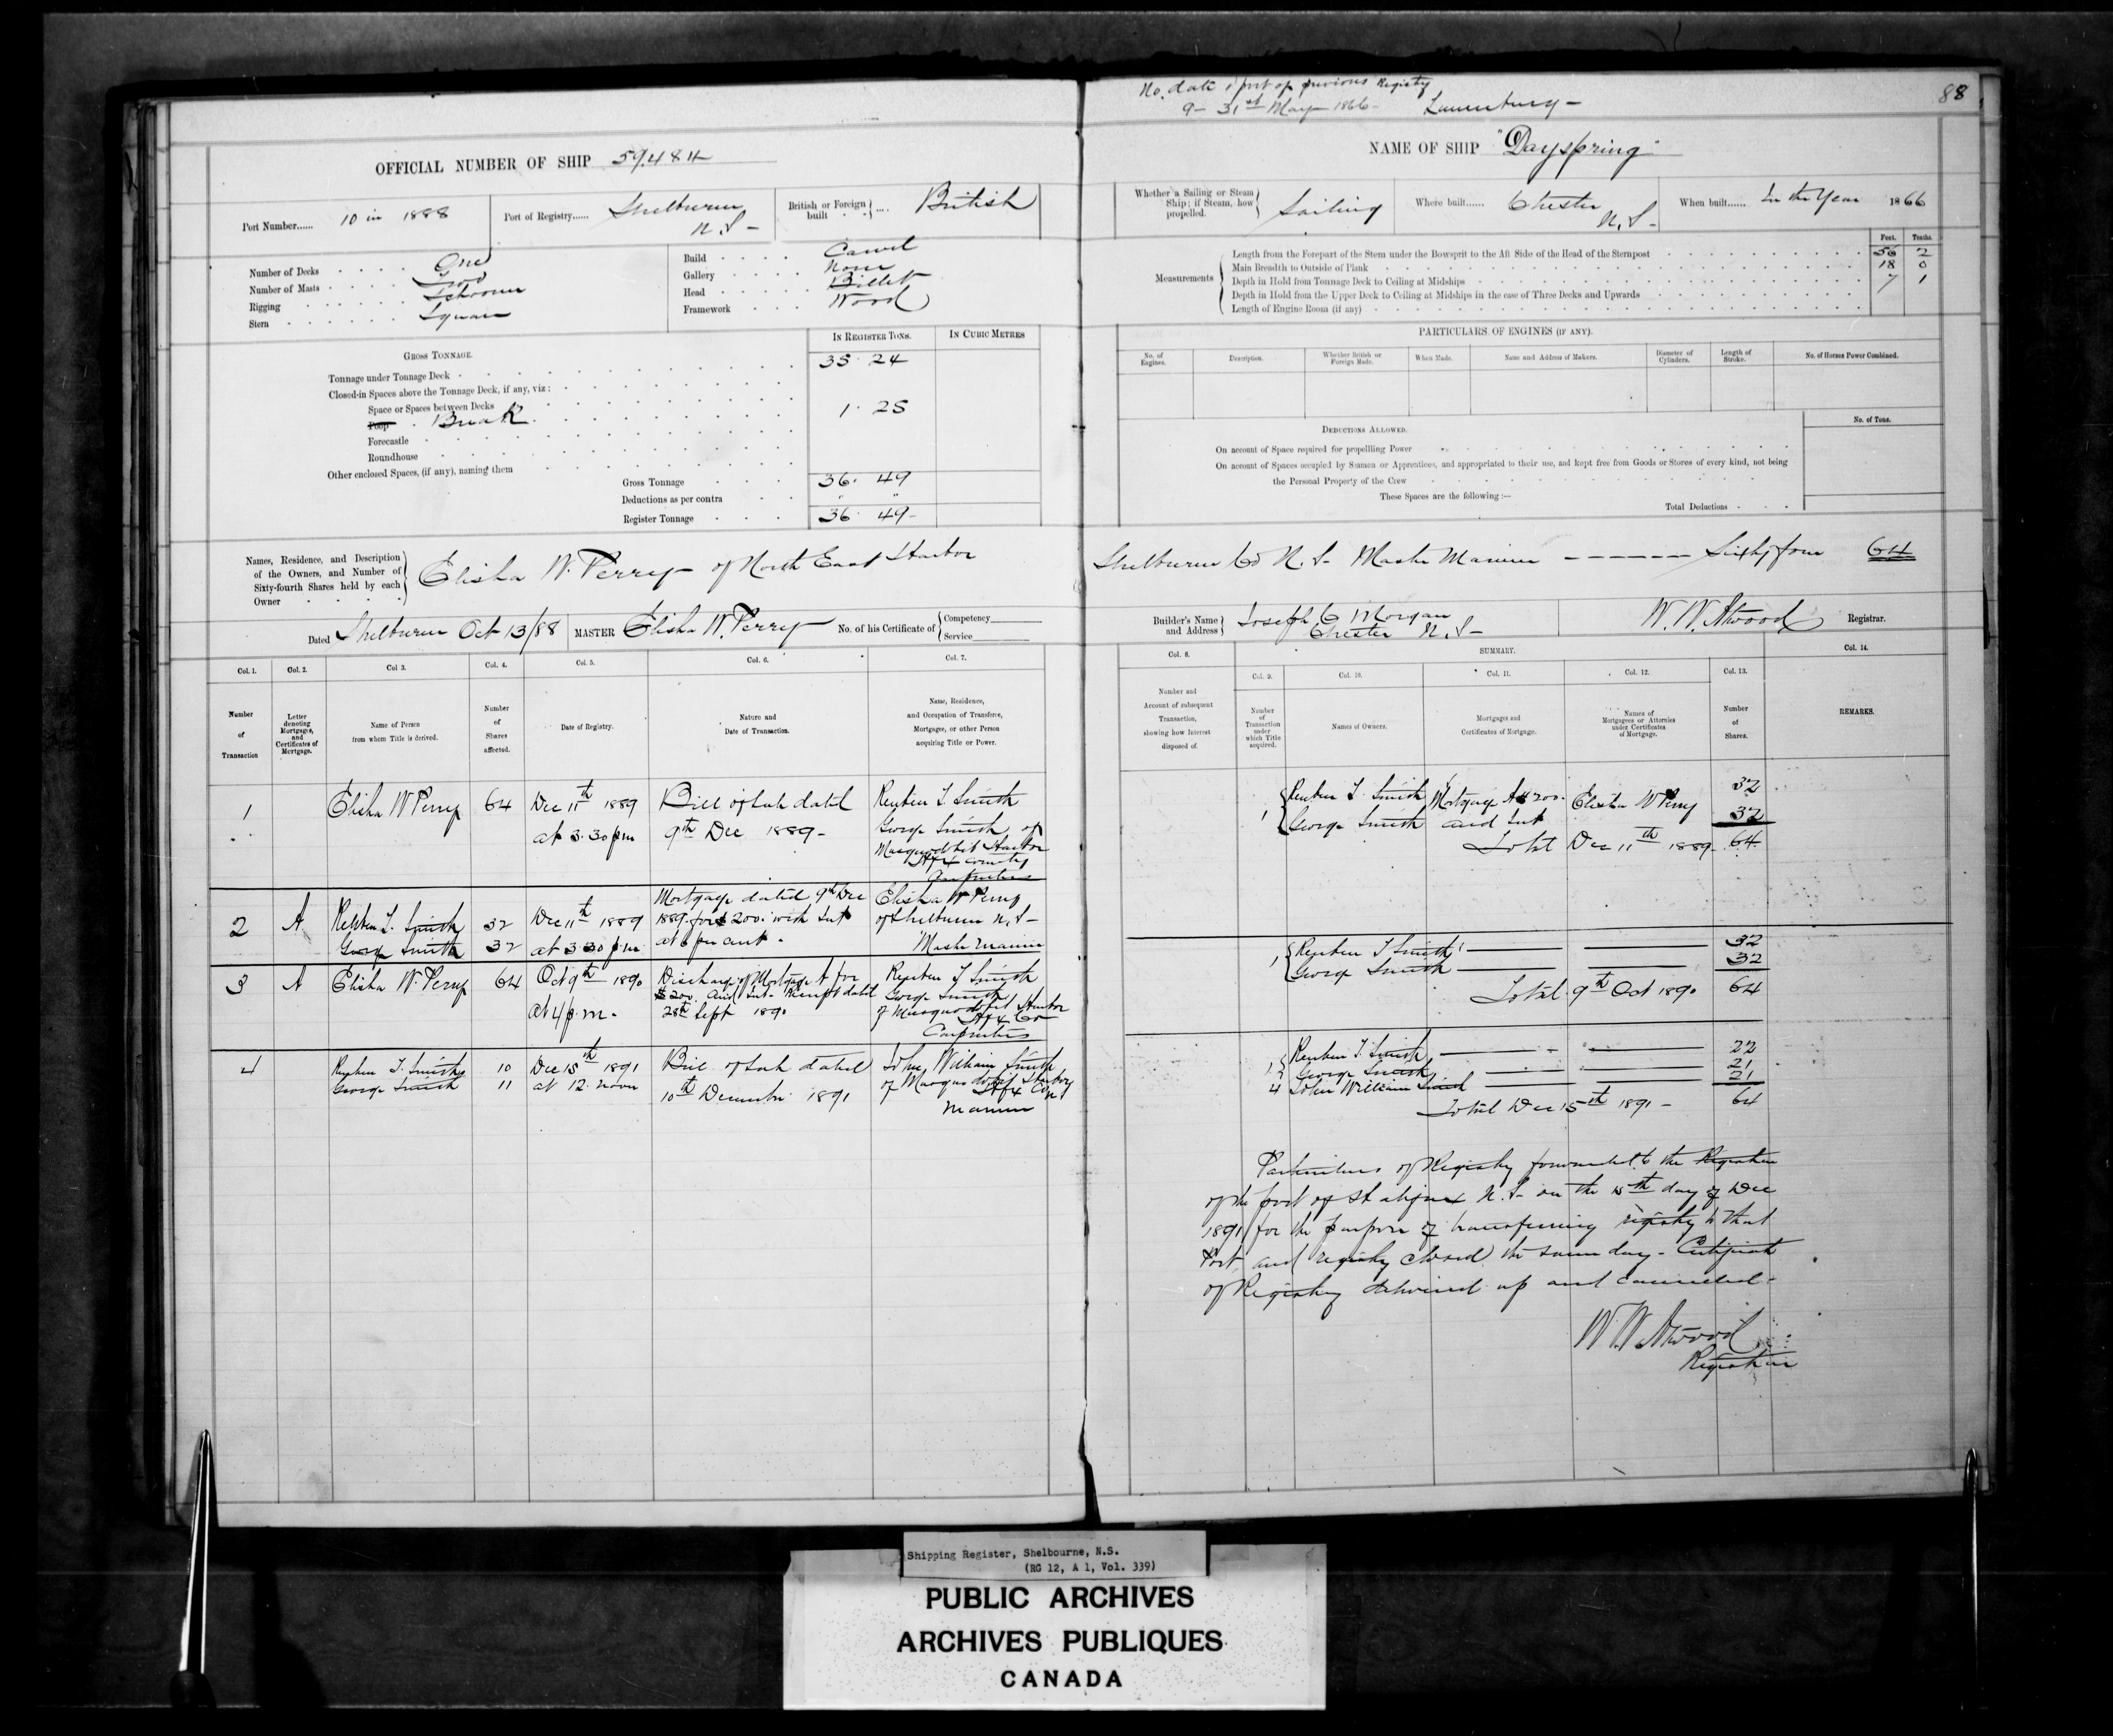 No. date & port of previous Registry
9 - 31st May 1866 - Lunenburg -
88
OFFICIAL NUMBER OF SHIP 59.484
NAME OF SHIP "Dayspring"
Port Number...... 10 in 1888
Port of Registry...... Shelburne N.S -
British or Foreign built .... British
Whether a Sailing or Steam Ship; if Steam, how propelled. Sailing
Where built...... Chester N.S -
When built...... In the Year 1866
Number of Decks One
Number of Masts Two
Rigging Schooner
Stern Square
Build Carvel
Gallery None
Head Billet
Framework Wood
Measurements
Feet. Tenths.
Length from the Forepart of the Stem under the Bowsprit to the Aft Side of the Head of the Sternpost 56 2
Main Breadth to Outside of Plank 18 0
Depth in Hold from Tonnage Deck to Ceiling at Midships 7 1
Depth in Hold from the Upper Deck to Ceiling at Midships in the case of Three Decks and Upwards
Length of Engine Room (if any)
GROSS TONNAGE.
IN REGISTER TONS.
IN CUBIC METRES
Tonnage under Tonnage Deck 35 24
Closed-in Spaces above the Tonnage Deck, if any, viz:
Space or Spaces between Decks
Poop Break 1. 25
Forecastle
Roundhouse
Other enclosed Spaces, (if any), naming them
Gross Tonnage 36. 49
Deductions as per contra " "
Register Tonnage 36 49-
PARTICULARS OF ENGINES (IF ANY).
No. of Engines.
Description.
Whether British or Foreign Made.
When Made.
Name and Address of Makers.
Diameter of Cylinders.
Length of Stroke.
No. of Horses Power Combined.
DEDUCTIONS ALLOWED.
No. of Tons.
On account of Space required for propellling Power
On account of Spaces occupied by Seamen or Apprentices, and appropriated to their use, and kept free from Goods or Stores of every kind, not being
the Personal Property of the Crew
These Spaces are the following:—
Total Deductions
Names, Residence, and Description of the Owners, and Number of Sixty-fourth Shares held by each Owner
Elisha W. Perry - of North East Harbor Shelburne Co N.S- Master Mariner ------ Sixty four 64
Dated Shelburne Oct 13/88
MASTER Elisha W. Perry
No. of his Certificate of Competency Service
Builder's Name and Address Joseph C Morgan
Chester N.S-
W. W. Atwood Registrar.
Col. 1.
Col. 2.
Col 3.
Col. 4.
Col. 5.
Col. 6.
Col. 7.
Number of Transaction
Letter denoting Mortgages, and Certificates of Mortgage.
Name of Person from whom Title is derived.
Number of Shares affected.
Date of Registry.
Nature and Date of Transaction.
Name, Residence, and Occupation of Transferee, Mortgagee, or other Person acquiring Title or Power.
Col. 8.
SUMMARY.
Col. 14.
Col. 9.
Col. 10.
Col. 11.
Col. 12.
Col. 13.
Number and Account of subsequent Transaction, showing how Interest disposed of.
Number of Transaction under which Title acquired.
Names of Owners.
Mortgages and Certificates of Mortgage.
Names of Mortgagees or Attornies under Certificates of Mortgage.
Number of Shares.
REMARKS.
1
Elisha W Perry
64
Dec 11th 1889
at 3.30 pm
Bill of Sale dated
9th Dec 1889-
Reuben T Smith
George Smith of
Musquodobit Harbor
Hfx County
Carpenters
2
A
Reuben T. Smith 32
George Smith 32
Dec 11th 1889
at 3 30 p.m.
Mortgage dated 9th Dec
1889 for $200. with Int
at 6 per cent.
Elisha W Perry
of Shelburne N.S-
Master Mariner
3
A
Elisha W. Perry
64
Oct 9th 1890
at 4 p.m.
Discharge of Mortgage A for
$200. and Int- Receipt dated
28th Sept 1890
Reuben T Smith
George Smith
of Musquodobit Harbor
Hfx Co
Carpenters
4
Reuben T. Smith 10
George Smith 11
Dec 15th 1891
at 12 noon
Bill of Sale dated
10th December 1891
John William Smith
of Musquodobit Harbor
Hfx Co
Mariner
1
Reuben T. Smith Mortgage A $200. Elisha W Perry 32
George Smith and Int 32
Total Dec 11th 1889- 64
1
Reuben T Smith 32
George Smith 32
Total 9th Oct 1890 64
1 Reuben T. Smith 22
George Smith 21
4 John William Smith 21
Total Dec 15th 1891 - 64
Particulars of Registry forwarded to the Registrar
of the port of Halifax N.S- on the 15th day of Dec
1891 for the purpose of transferring registry to that
Port, and registry closed the same day - Certificate
of Registry delivered up and cancelled -
W.W. Atwood
Registrar
Shipping Register, Shelbourne, N.S.
(RG 12, A 1, Vol. 339)
PUBLIC ARCHIVES
ARCHIVES PUBLIQUES
CANADA